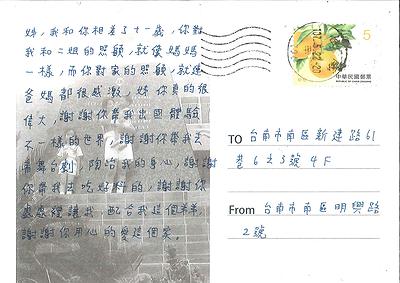 姊，我和你相差了十一歲，你對
我和二姐的照顧，就像媽媽
一樣，而你對家的照顧，就連
爸媽都很感激，姊你真的很
偉大，謝謝你帶我出國體驗
不一樣的世界，謝謝你帶我去
看舞台劇，陶冶我的身心，謝謝
你帶我去吃好料的，謝謝你
處處禮讓我，配合我這個弟弟，
謝謝你用心的愛這個家。
5
中華民國郵票
REPUBLIC OF CHINA (TAIWAN)
107.5.22.20
TO 台南市南區新建路61
巷6之3號4F
From 台南市南區明興路
2號